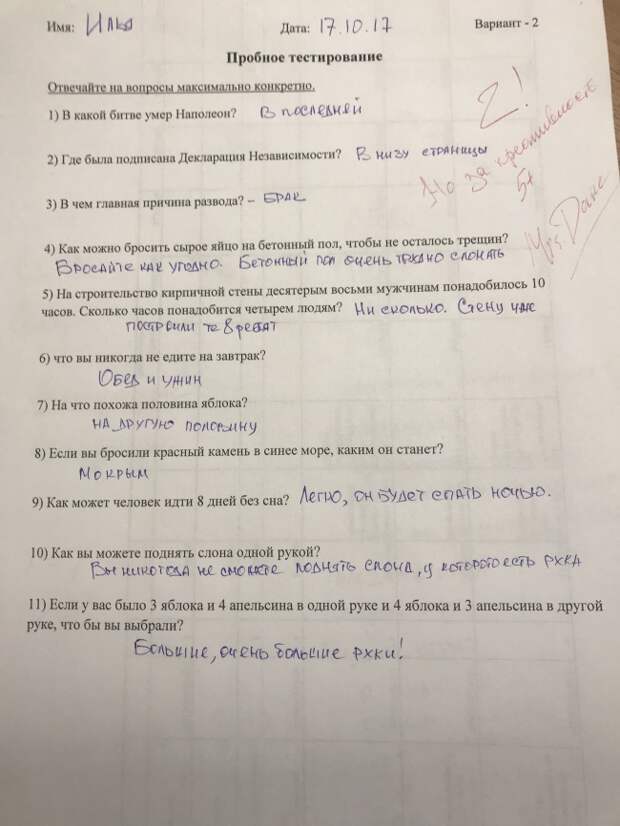 Имя: Илья Дата: 17.10.17 Вариант - 2
Пробное тестирование
Отвечайте на вопросы максимально конкретно.
1) В какой битве умер Наполеон? В последней
2) Где была подписана Декларация Независимости? В низу страницы
2!
Но за креативность
5+
3) В чем главная причина развода? – БРАК
4) Как можно бросить сырое яйцо на бетонный пол, чтобы не осталось трещин?
Бросайте как угодно. Бетонный пол очень трудно сломать
5) На строительство кирпичной стены десятерым восьми мужчинам понадобилось 10
часов. Сколько часов понадобится четырем людям? Ни сколько. Стену уже
построили те 8 ребят
6) что вы никогда не едите на завтрак?
Обед и ужин
7) На что похожа половина яблока?
НА другую половину
8) Если вы бросили красный камень в синее море, каким он станет?
Мокрым
9) Как может человек идти 8 дней без сна? Легко, он будет спать ночью.
10) Как вы можете поднять слона одной рукой?
Вы никогда не сможете поднять слона, у которого есть рука
11) Если у вас было 3 яблока и 4 апельсина в одной руке и 4 яблока и 3 апельсина в другой
руке, что бы вы выбрали?
Большие, очень большие руки!